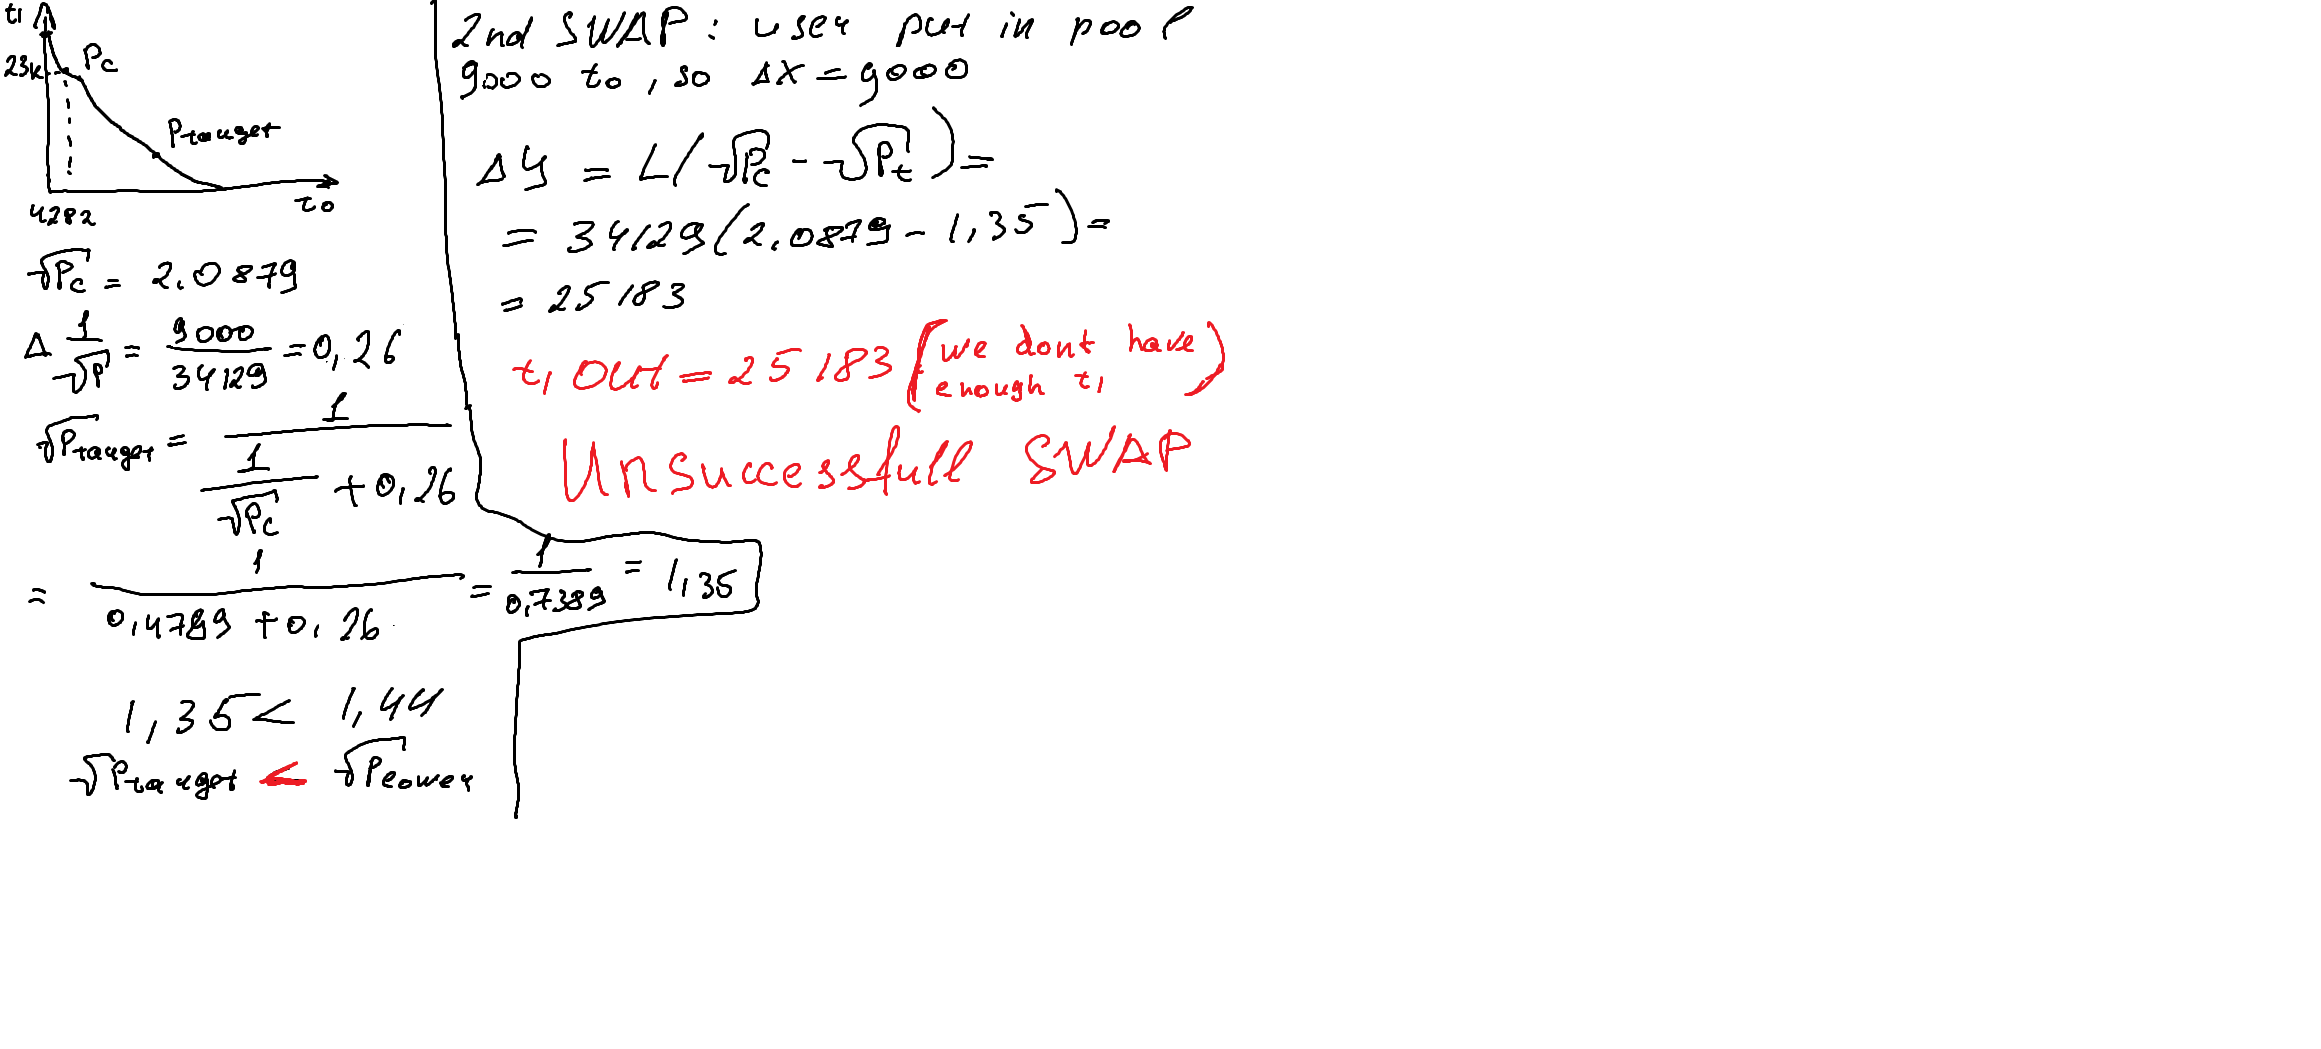 t1
23k
Pc
Ptarget
4282
t0
√Pc = 2.0879
Δ 1/√P = 9000/34129 = 0,26
√Ptarget = 1/(1/√Pc + 0,26)
= 1/(0,4789 + 0,26) = 1/0,7389 = 1,35
1,35 < 1,44
√Ptarget < √Plower
2nd SWAP: user put in pool
9000 t0, so ΔX = 9000
Δy = L(√Pc - √Pt) =
= 34129(2.0879 - 1,35) =
= 25183
t1 out = 25183 (we dont have
enough t1)
Unsuccessfull SWAP